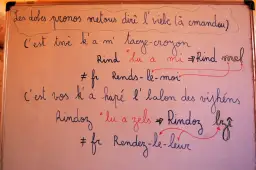 Les dobs pronos metous dirî l' viebe (à cmandeu)
C'est tiné k' a m' taeye-croyon
Rind *lu a mi ⇒ Rind
≠ fr Rends-le-moi
C'est vos k' a hapé l' balon des vijhéns
Rindoz *lu a zels ⇒ Rindoz
≠ fr Rendez-le-leur